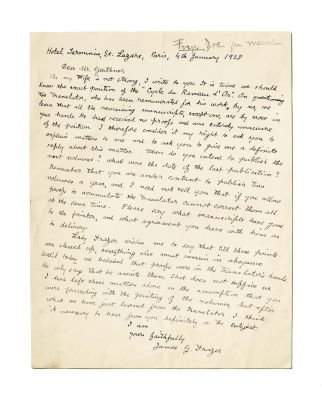 Hotel Terminus, St. Lazare, Paris, 4th January 1928
Dear Mr. Geuthner,
As my wife is not strong, I write to you. It is time we should
know the exact position of the "Cycle du Rameau d'Or". On questioning
the translator, who has been remunerated for his work, by us, we
learn that all the remaining manuscripts, except one, are by now in
your hands. He had received no proofs and was entirely unaware
of the position. I therefore consider it my right to ask you to
explain matters to me and to ask you to give me a definite
reply about this matter. When do you intend to publish the
next volume? What was the date of the last publication?
Remember that you are under contract to publish two
volumes a year, and I need not tell you that if you allow
proofs to accumulate the translator cannot correct them all
at the same time. Please say what manuscripts have gone
to the printer, and what agreement you have with him as
to delivery.
Lady Frazer wishes me to say that till these points
are cleared up, everything else must remain in abeyance.
Until today we believed that proofs were in the translator's hands.
He only says that he awaits them. That does not suffice us.
I had left these matters alone on the assumption that you
were proceeding with the printing of the volumes. But after
what we have just learned from the translator I think
it necessary to hear from you definitely on the subject.
I am
yours faithfully
James G. Frazer